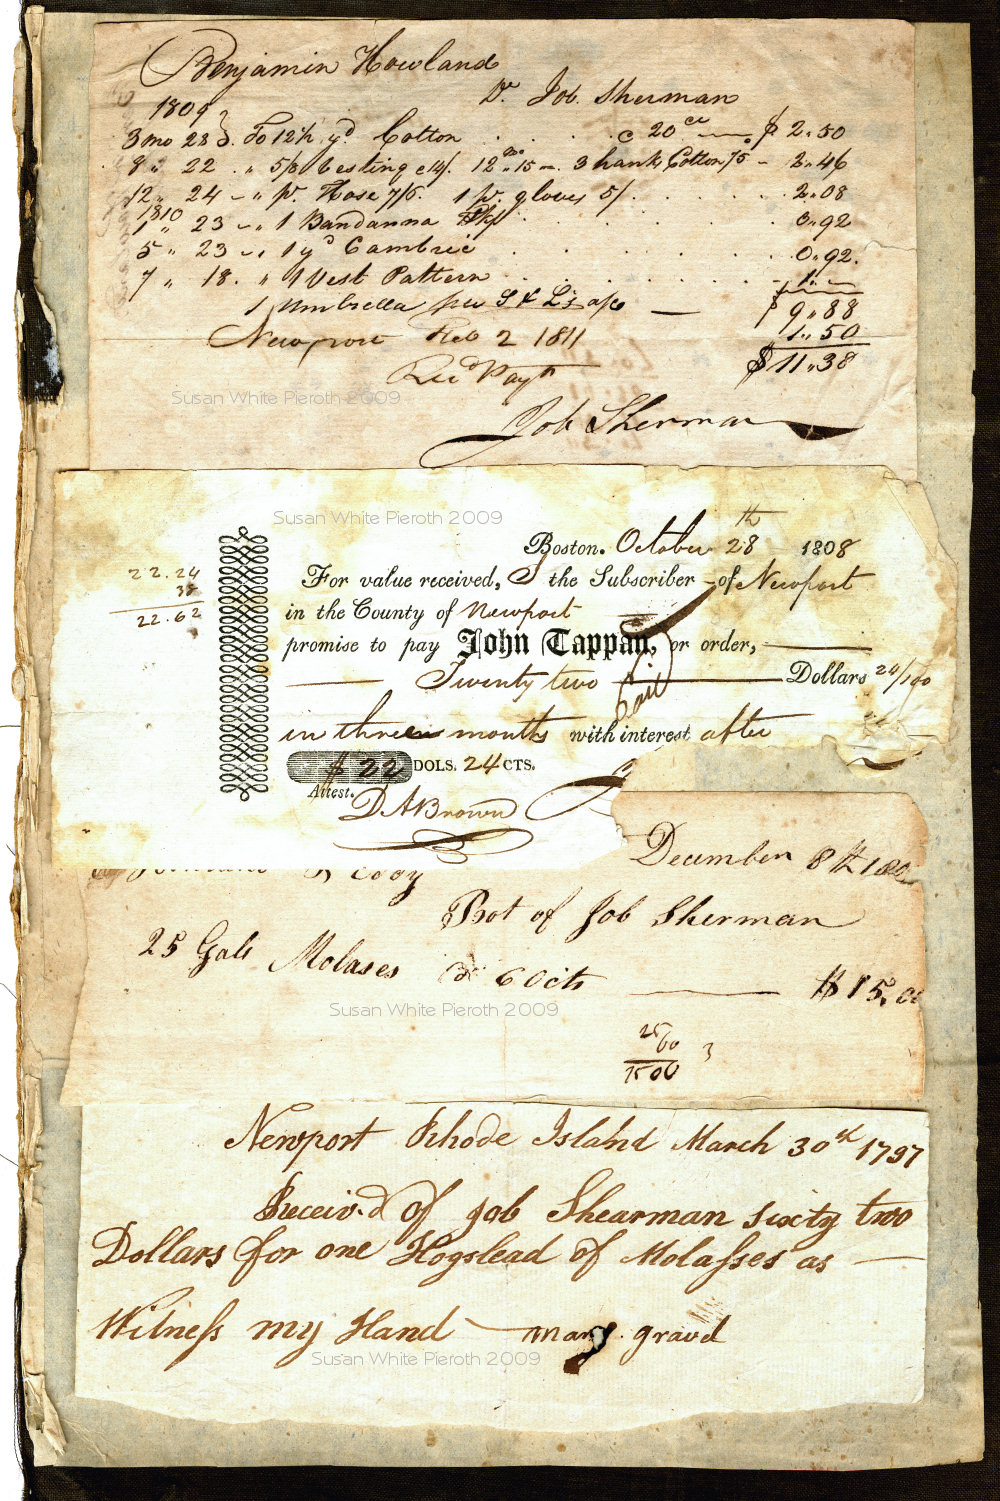 Benjamin Howland
Dr Job Sherman
1809
3 mo 28 To 12½ yd Cotton c 20 ct $ 2.50
9 " 22 " 5/8 Vesting 3 hank Cotton 2.46
12 " 24 " pr. Hose 7/6. 1 pr. gloves 5/. 2.08
1810
1 " 23 " 1 Bandanna Hkf 0.92
5 " 23 " 1 yd Cambric 0.92.
7 " 18. " 1 Vest Pattern 1"
$ 9.88
1 Umbrella per S & L's a/c 1.50
Newport Feb 2 1811 $ 11.38
Recd Payt
Susan White Pieroth 2009
Job Sherman
Susan White Pieroth 2009
Boston. October 28th 1808
22.24
38
22.62
For value received, I the Subscriber of Newport
in the County of Newport
promise to pay John Tappan, or order,
Twenty two Dollars 24/100
Paid
in three months with interest after
$ 22 DOLS. 24 CTS.
Attest.
D A Brown
December 8th 180
Cory
Bot of Job Sherman
25 Gals Molases @ 60 cts $ 15.00
Susan White Pieroth 2009
25
60
1500
Newport Rhode Island March 30th 1797
Receiv.d of Job Shearman sixty two
Dollars for one Hogslead of Molasses as
Witness my Hand mary. graved
Susan White Pieroth 2009